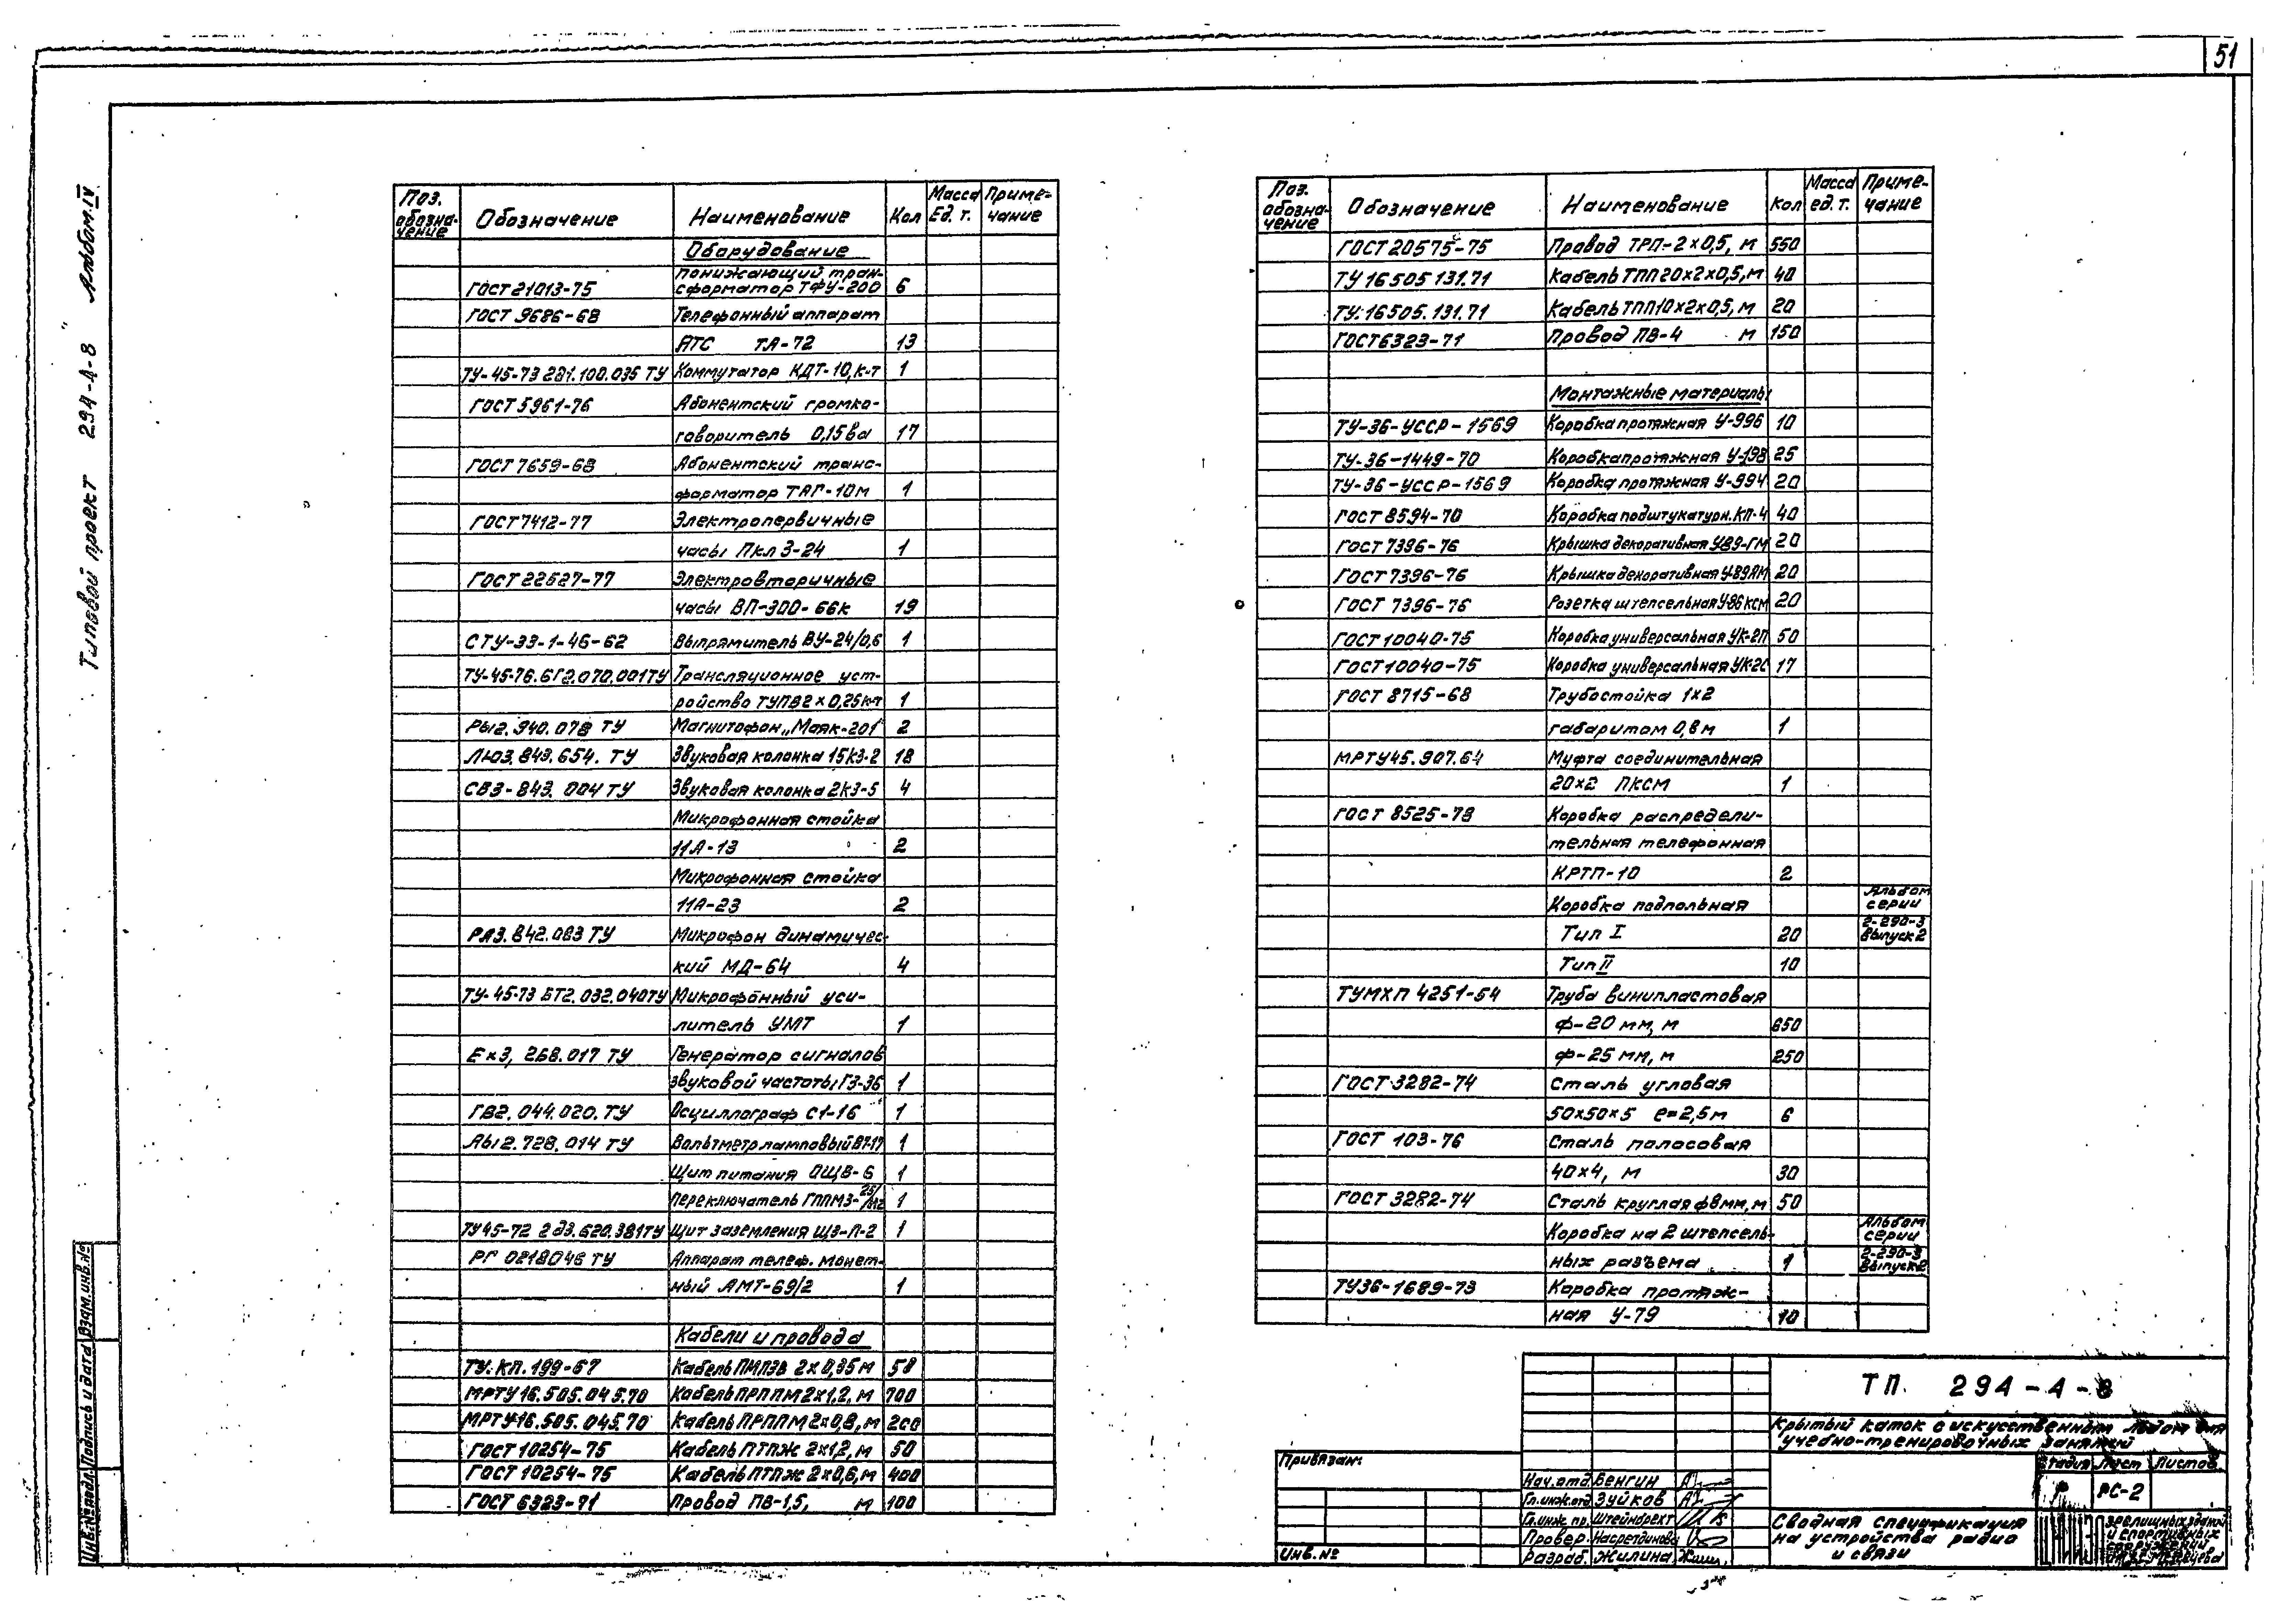 51
Типовой проект 294-4-8 Альбом IV
Поз. обозначение Обозначение Наименование Кол Масса Ед. т. Примечание
Оборудование
Понижающий тран-
ГОСТ 21013-75 сформатор ТФУ-200 6
ГОСТ 9686-68 Телефонный аппарат
АТС ТА-72 13
ТУ-45-73 281.100.035 ТУ Коммутатор КДТ-10, к-т 1
ГОСТ 5961-76 Абонентский громко-
говоритель 0,15 ва 17
ГОСТ 7659-68 Абонентский транс-
форматор ТАГ-10м 1
ГОСТ 7412-77 Электропервичные
часы Пкл 3-24 1
ГОСТ 22527-77 Электровторичные
часы ВП-300-66к 19
СТУ-33-1-46-62 Выпрямитель ВУ-24/0,6 1
ТУ-45-76.6Г2.070.001ТУ Трансляционное уст-
ройство ТУПВ2×0,25к-т 1
РЫ2.940.078 ТУ Магнитофон „Маяк-201 2
ЛЮ3.843.654. ТУ Звуковая колонка 15КЗ-2 18
СВ3-843. 004 ТУ Звуковая колонка 2КЗ-5 4
Микрофонная стойка
11А-13 2
Микрофонная стойка
11А-23 2
РЯ3.842.083 ТУ Микрофон динамичес-
кий МД-64 4
ТУ-45-73 БТ2.032.040ТУ Микрофонный уси-
литель УМТ 1
Ех3, 268.017 ТУ Генератор сигналов
звуковой частоты Г3-36 1
ГВ2.044.020.ТУ Осциллограф С1-16 1
ЯЫ2.728.014 ТУ Вольтметр ламповый В7-17 1
Щит питания ОЩВ-6 1
Переключатель ГППМ3-25/ 1
ТУ45-72 2д3.620.381ТУ Щит заземления ЩЗ-П-2 1
РГ 0218046 ТУ Аппарат телеф. монет-
ный АМТ-69/2 1
Кабели и провода
ТУ.КП.199-67 Кабель ПМПЗВ 2×0,35 м 58
МРТУ16.505.045.70 Кабель ПРППМ 2×1,2, м 700
МРТУ-16.505.045.70 Кабель ПРППМ 2×0,8, м 200
ГОСТ 10254-75 Кабель ПТПЖ 2×1,2, м 50
ГОСТ 10254-75 Кабель ПТПЖ 2×0,6, м 400
ГОСТ 6323-71 Провод ПВ-1,5, м 100
Поз. обозначение Обозначение Наименование Кол Масса ед. т. Примечание
ГОСТ 20575-75 Провод ТРП-2×0,5, м 550
ТУ 16505 131.71 Кабель ТПП 20×2×0,5, м 40
ТУ.16505.131.71 Кабель ТПП10×2×0,5, м 20
ГОСТ6323-71 Провод ПВ-4 м 150
Монтажные материалы
ТУ-36-УССР-1569 Коробка протяжная У-996 10
ТУ-36-1449-70 Коробка протяжная У-198 25
ТУ-36-УССР-1569 Коробка протяжная У-994 20
ГОСТ 8594-70 Коробка подштукатурн. КП-4 40
ГОСТ 7396-76 Крышка декоративная У89-ГМ 20
ГОСТ 7396-76 Крышка декоративная У-89АМ 20
ГОСТ 7396-76 Розетка штепсельная У-86 КСМ 20
ГОСТ10040-75 Коробка универсальная УК-2П 50
ГОСТ10040-75 Коробка универсальная УК-2С 17
ГОСТ 8715-68 Трубостойка 1×2
габаритом 0,8 м 1
МРТУ45.907.64 Муфта соединительная
20×2 ПКСМ 1
ГОСТ 8525-78 Коробка распредели-
тельная телефонная
КРТП-10 2
Коробка подпольная Альбом серии
Тип I 20 2-290-3 Выпуск 2
Тип II 10
ТУМХП 4251-54 Труба винипластовая
ф-20 мм, м 650
ф-25 мм, м 250
ГОСТ 3282-74 Сталь угловая
50×50×5 ℓ=2,5м 6
ГОСТ 103-76 Сталь полосовая
40×4, м 30
ГОСТ 3282-74 Сталь круглая ф8мм, м 50
Коробка на 2 штепсель- Альбом серии
ных разъема 1 2-290-3 Выпуск 2
ТУ36-1689-73 Коробка протяж-
ная У-79 10
ТП. 294-4-8
Крытый каток с искусственным льдом для
учебно-тренировочных занятий
Привязан:
Инв. №
Нач. отд Бенгин
Гл. инж. отд Зуйков
Гл. инж. пр. Штейнбрехт
Провер. Насретдинова
Разраб. Жилина
Стадия Лист Листов
Р РС-2
Сводная спецификация
на устройства радио
и связи
зрелищных зданий
и спортивных
сооружений
Инв. № подл. Подпись и дата Взам. инв. №